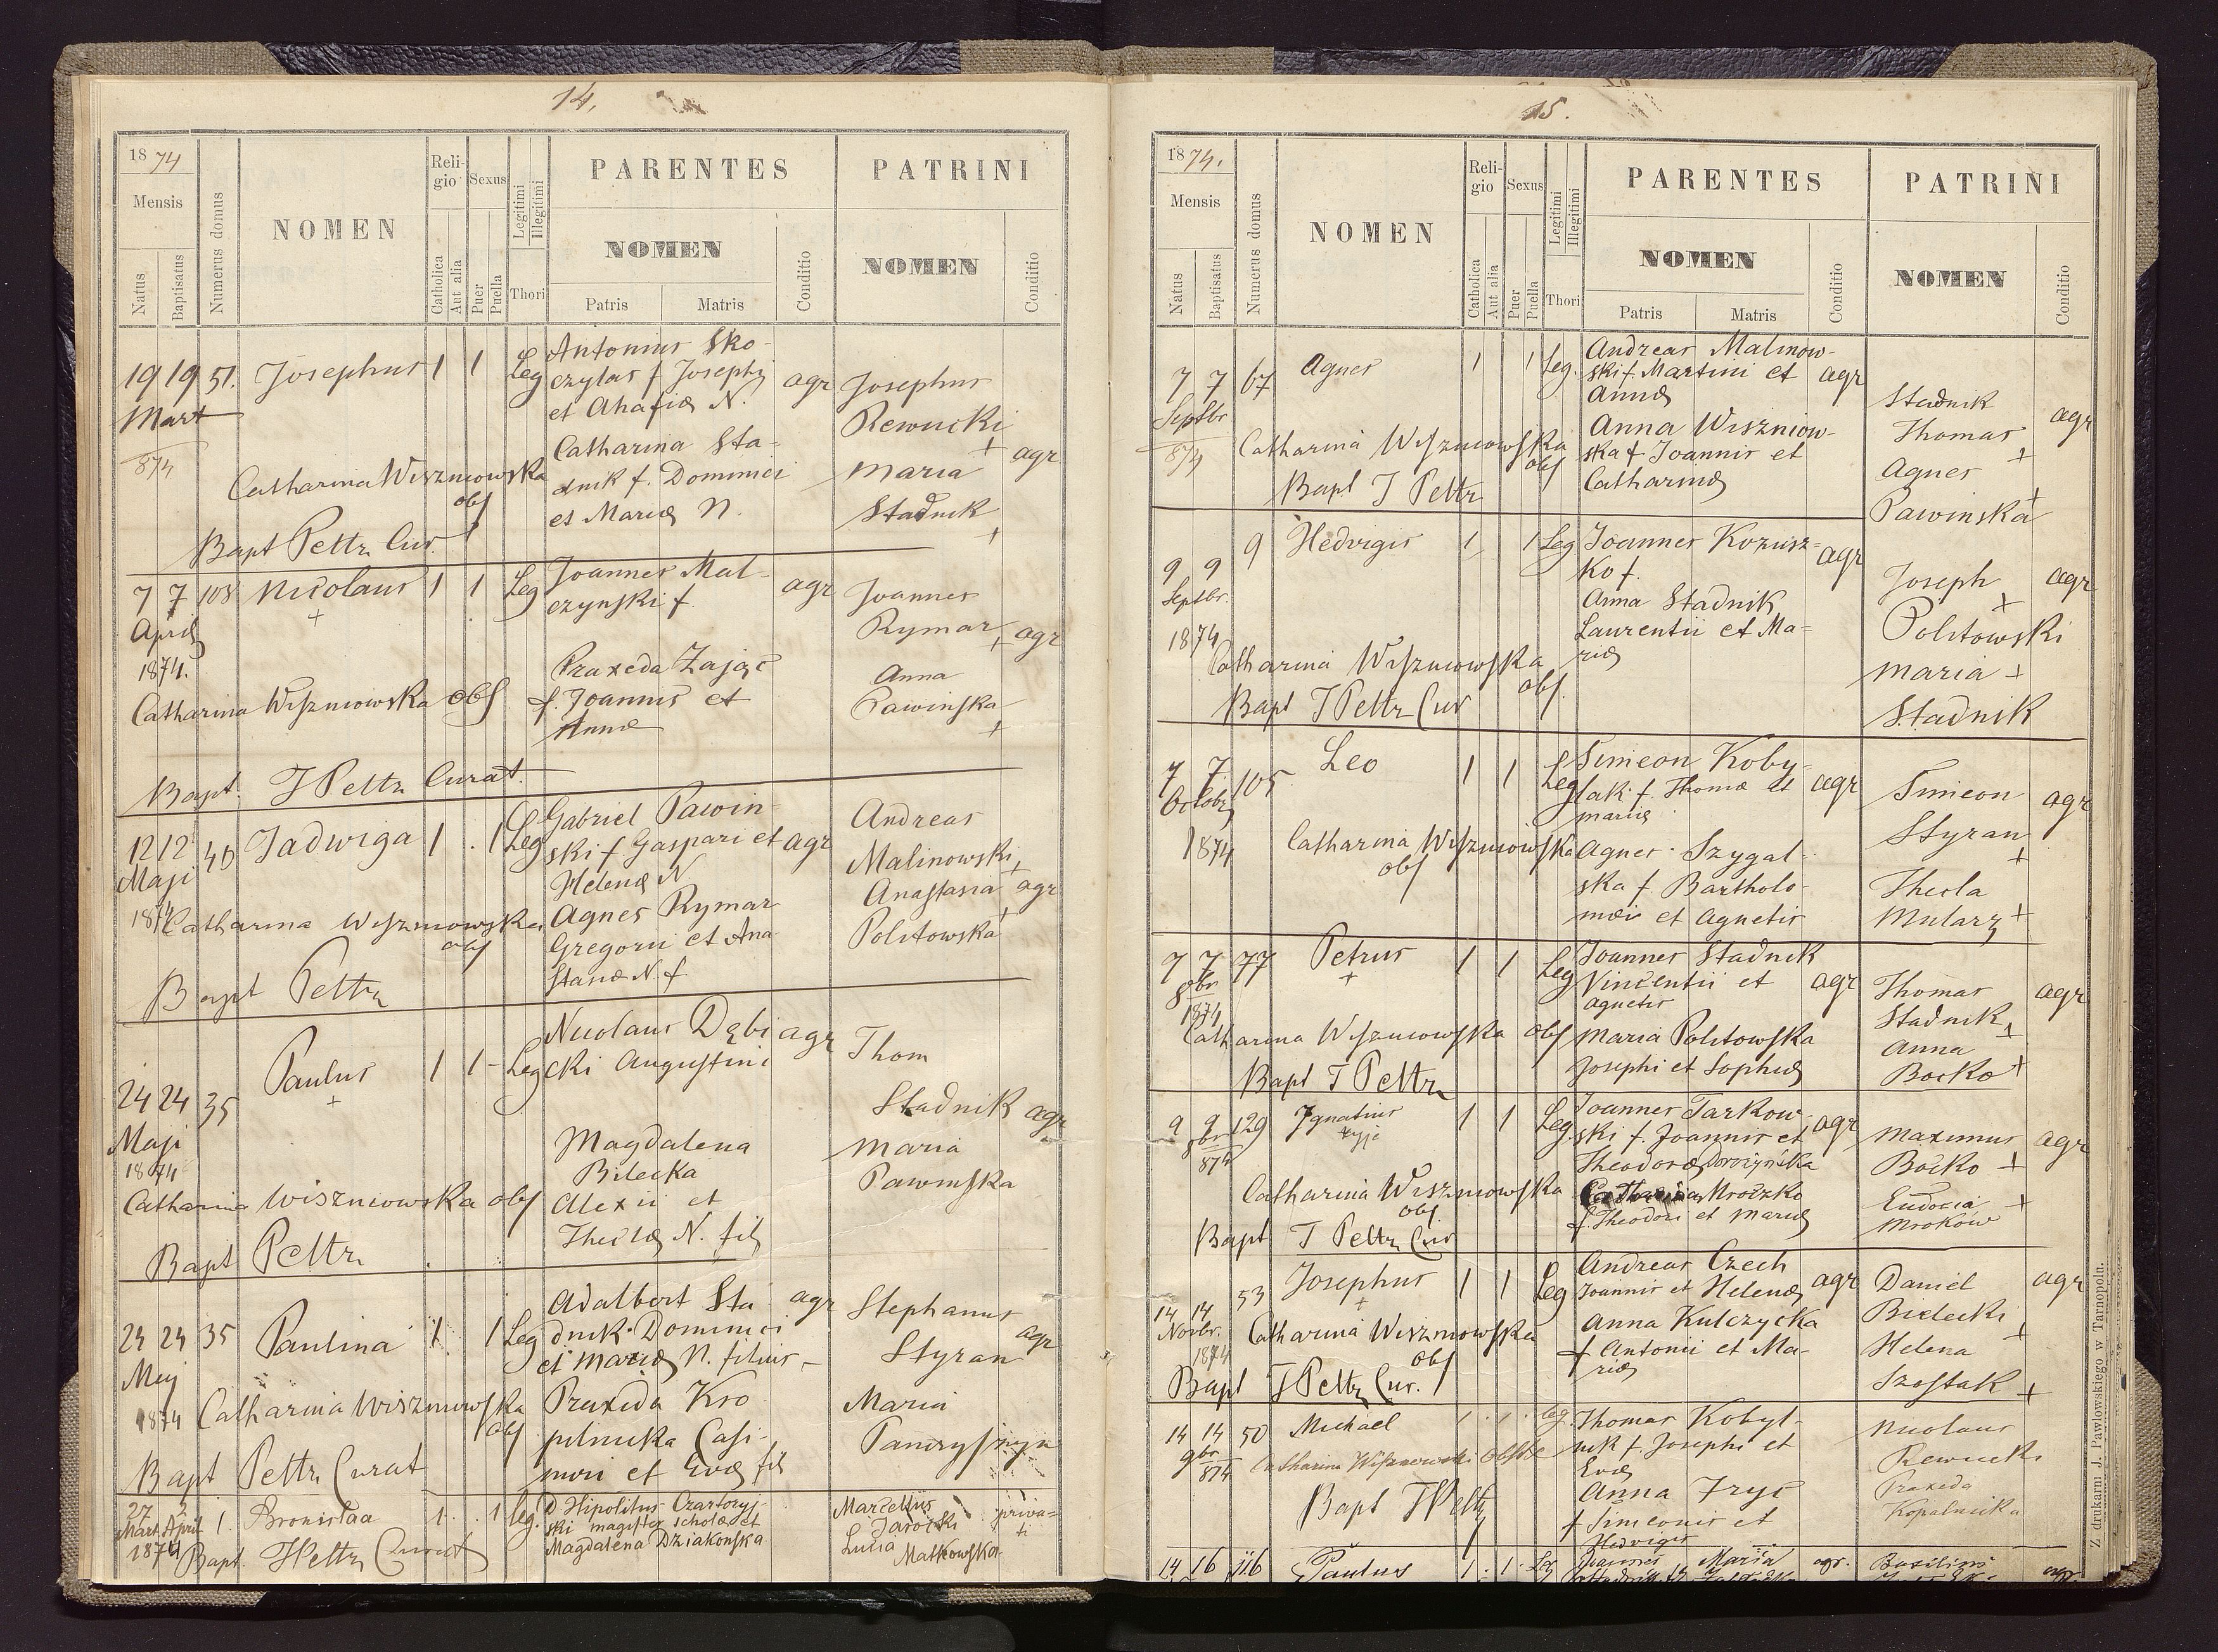 14.
1874
Mensis
Natus
Baptisatus
Numerus domus
NOMEN
Reli-
gio
Catholica
Aut alia
Sexus
Puer
Puella
Legitimi
Illegitimi
Thori
PARENTES
NOMEN
Patris
Matris
Conditio
PATRINI
NOMEN
Conditio
19 19 51. Josephus 1 1 Leg
Mart
874
Antonius Sko-
czylas f Josephi
et Ahafiæ N.
agr
Catharina Sta-
dnik f. Dominici
et Mariæ N.
Josephus
Rewucki
+
Maria
Stadnik
+
agr
Catharina Wiszniowska
obs
Bapt Peltz Cur.
7 7 108 Nicolaus 1 1 Leg
+
April
1874.
Joannes Mal-
czynski f.
agr
Praxeda Zając
f. Joannis et
Annæ
Joannes
Rymar
+
agr
Anna
Pawinska
+
Catharina Wiszniowska obs
Bapt. J Peltz Curat.
12 12 40 Jadwiga 1 . 1 Leg
Maji
1874
Gabriel Pawin-
ski f Gaspari et
Helenæ N.
agr
Agnes Rymar
Gregorii et Ana-
stasiæ N. f
Andreas
Malinowski
+
Anastasia agr
+
Politowska
Catharina Wiszniowska
obs
Bapt Peltz
24 24 35 Paulus 1 1 - Leg
+
Maji
1874
Nicolaus Dębi
cki Augustini
agr
Magdalena
Bilecka
Alexii et
Theclæ N. fil
Thom
Stadnik agr
Maria
Pawinska
Catharina Wiszniowska obs
Bapt Peltz
24 24 35 Paulina 1. 1 Leg
Maj
1874
Adalbert Sta
dnik Dominici
et Mariæ N. filius -
agr
Praxeda Kro
pilnicka Casi-
miri et Evæ fil
Stephanus
Styran
agr
Maria
Catharina Wiszniowska
obs
Bapt Peltz Curat
27 2 1. Bronislaa 1. . 1 leg.
Mart. April
1874
D Hipolitus Czartoryj-
ski magister scholæ et
Magdalena Dziakonska
Marcellus
Jarocki
Lucia
Malkowska
priva-
ti
Bapt. J Peltz Curat
15.
1874.
Mensis
Natus
Baptisatus
Numerus domus
NOMEN
Reli-
gio
Catholica
Aut alia
Sexus
Puer
Puella
Legitimi
Illegitimi
Thori
PARENTES
NOMEN
Patris
Matris
Conditio
PATRINI
NOMEN
Conditio
7 7 67 Agnes 1 1 Leg.
Septbr
874
Andreas Malinow-
ski f. Martini et
Annæ
agr
Anna Wiszniow-
ska f Joannis et
Catharinæ
Stadnik
Thomas
+
Agnes
+
Pawinska
agr
Catharina Wiszniowska
obs
Bapt J Peltz
9 9 9 Hedvigis 1 1 Leg
Septbr.
1874
Joannes Kozusz-
ko f.
agr
Anna Stadnik
Laurentii et Ma-
riæ
Joseph
+
Politowski
Maria +
Stadnik
agr
Catharina Wiszniowska
obs.
Bapt J Peltz Cur
7 7. 105 Leo 1 1 Leg
Octobr
1874
Simeon Koby-
lak f. Thomæ et
Mariæ
agr
Agnes Szygal-
ska f Bartholo-
mæi et Agnetis
Simeon
Styran
+
Thecla
Mularz +
agr
Catharina Wiszniowska
obs
7 7 77 Petrus 1 1 Leg
+
8br
1874
Joannes Stadnik
Vincentii et
Agnetis
agr
Maria Politowska
Josephi et Sophiæ
Thomas
Stadnik
+
Anna
Bocko +
agr
Catharina Wiszniowska obs
Bapt J Peltz
9 9 129 Ignatius 1 1 Leg.
żyje
9br
874
Joannes Tarkow-
ski f. Joannis et
Theodoræ Dorożyńska
agr
Catharina Mroczko
f. Theodori et Mariæ
Maximus
Boćko +
Eudocia +
Mroków
agr
Catharina Wiszniowska
obs.
Bapt J Peltz Cur
14 14 53 Josephus 1 1 Leg
+
Novbr.
1874
Andreas Czech
Joannis et Helenæ
agr
Anna Kulczycka
f Antonii et Ma-
riæ
Daniel
Bielecki
+
Helena
Szostak +
agr
Catharina Wiszniowska
obs
Bapt J Peltz Cur.
14 14 50 Michael 1 . 1 . leg.
9br
874
Thomas Kobyl-
nik f. Josephi et
Evæ
Anna Fryс
f Simeonis et
Hedvigis
Nicolaus
Rewucki
Praxeda
Kopalnicka
Catharina Wiszniowski obste
Bapt J Peltz
14 16 116 Paulus 1. . 1 . Leg
Joannes
Maria
agr.
Basilius
agr.
Z drukarni J. Pawłowskiego w Tarnopolu.